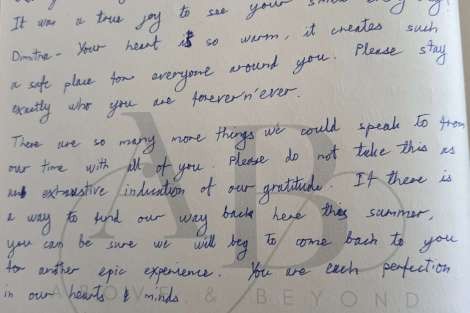 It was a true joy to see your smile every day!
Dimitra - Your heart is so warm, it creates such
a safe place for everyone around you. Please stay
exactly who you are forever'n'ever.
There are so many more things we could speak to from
our time with all of you. Please do not take this as
exhaustive indication of our gratitude. If there is
a way to find our way back here this summer,
you can be sure we will beg to come back to you
for another epic experience. You are each perfection
in our hearts & minds
AB
ABOVE & BEYOND